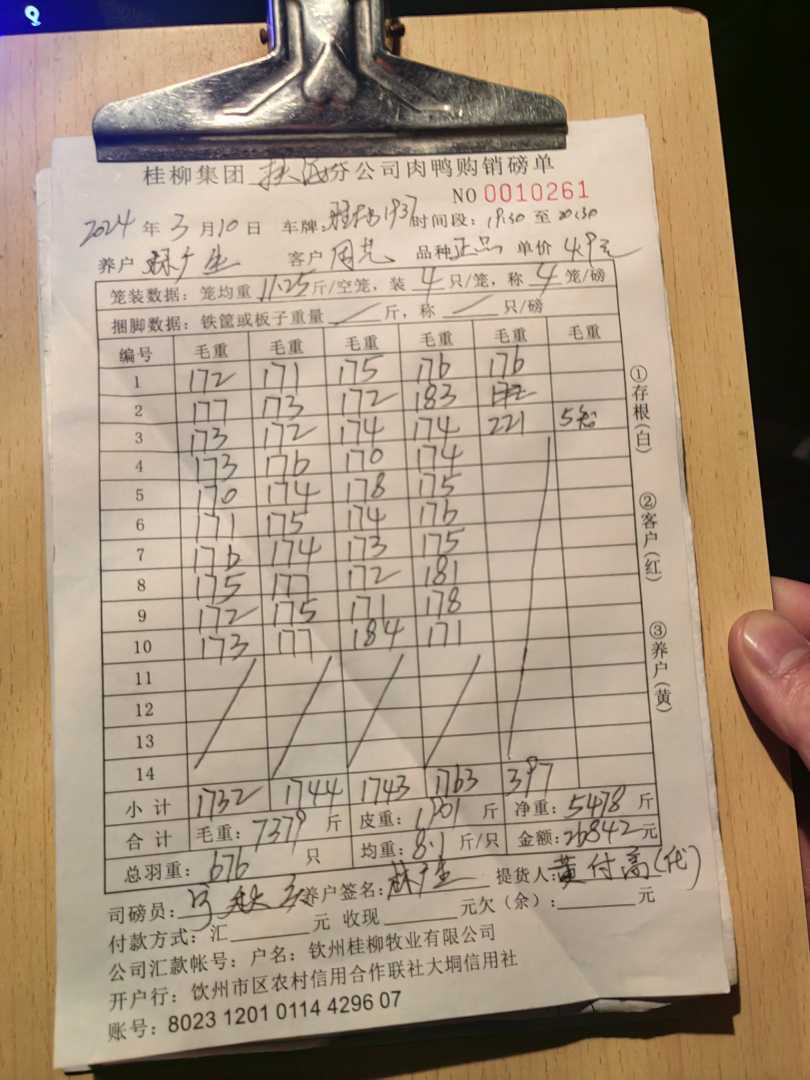 桂柳集团 分公司肉鸭购销磅单
NO 0010261
2024 年 3 月 10 日 车牌: 1937 时间段: 19:30 至 20:30
养户 林广生 客户 周光 品种 正品 单价 4.9元
笼装数据: 笼均重 11.25 斤/空笼, 装 4 只/笼, 称 4 笼/磅
捆脚数据: 铁筐或板子重量 / 斤, 称 / 只/磅
编号 毛重 毛重 毛重 毛重 毛重 毛重
1 172 171 175 176 176
2 177 173 172 183
3 173 172 174 174 221 5笼
4 173 176 170 174
5 170 174 178 175
6 171 175 174 176
7 176 174 173 175
8 175 177 172 181
9 172 175 171 178
10 173 177 184 171
11
12
13
14
小计 1732 1744 1743 1763 397
合计 毛重: 7379 斤 皮重: 1901 斤 净重: 5478 斤
总羽重: 676 只 均重: 8.1 斤/只 金额: 26842 元
司磅员: 养户签名: 林广生 提货人: 黄付高(代)
付款方式: 汇 元 收现 元欠(余): 元
公司汇款帐号: 户名: 钦州桂柳牧业有限公司
开户行: 钦州市区农村信用合作联社大垌信用社
账号: 8023 1201 0114 4296 07
①存根(白)
②客户(红)
③养户(黄)